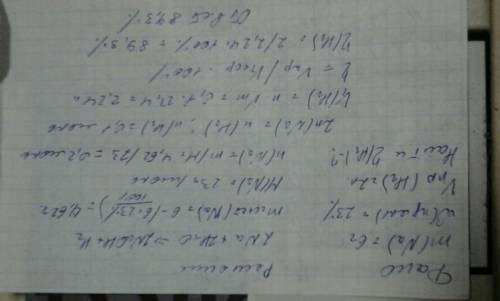 Дано
m(Na) = 6г
ω(прим) = 23%
Vпр(H₂) = 2л
Найти η(H₂) - ?
Решение
2Na + 2H₂O → 2NaOH + H₂
m чист(Na) = 6 - (6 · 23% / 100%) = 4,62г
M(Na) = 23г/моль
n(Na) = m/M = 4,62/23 = 0,2моль
2n(Na) = n(H₂); n(H₂) = 0,1 моль
V(H₂) = n · Vm = 0,1 · 22,4 = 2,24л
η = Vпр/Vтеор · 100%
η(H₂) = 2/2,24 · 100% = 89,3%
Ответ 89,3%